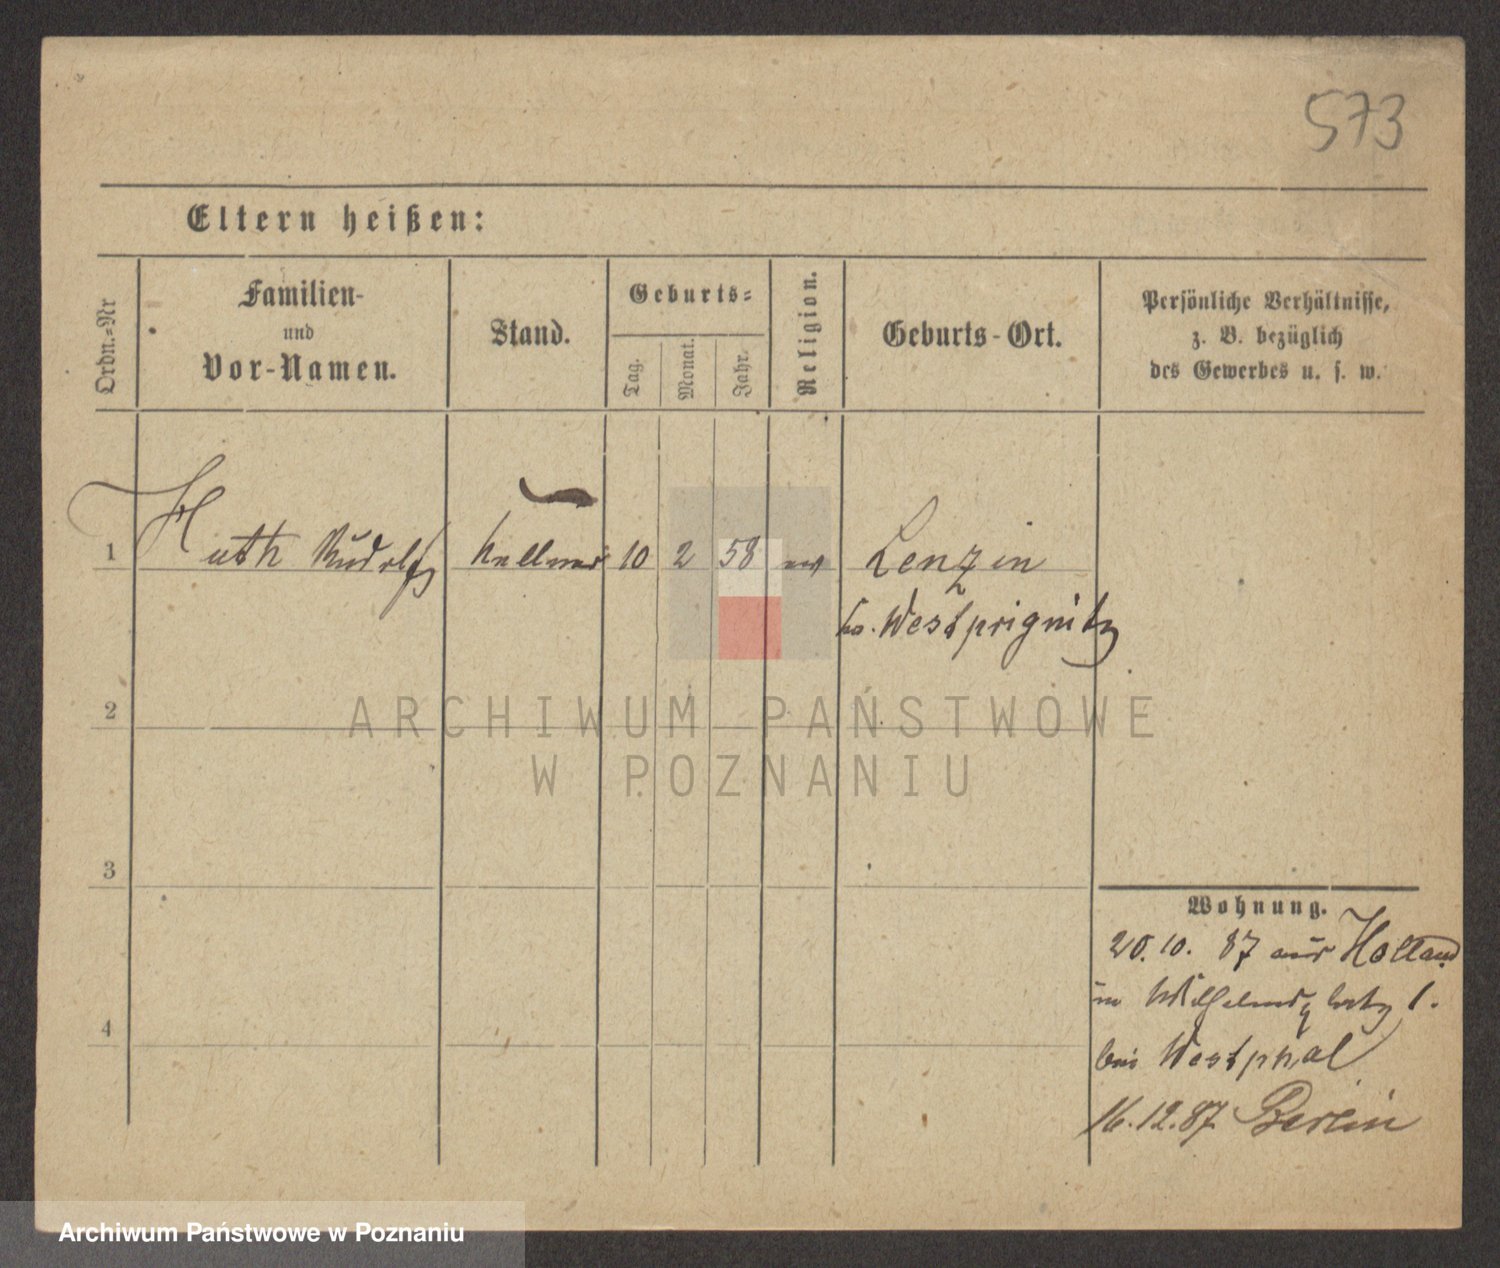 573
Eltern heißen:
Ordn.-Nr
Familien-
und
Vor-Namen.
Stand.
Geburts-
Tag.
Monat.
Jahr.
Religion.
Geburts-Ort.
Persönliche Verhältnisse,
z. B. bezüglich
des Gewerbes u. s. w.
1 Huth Rudolf Kellner 10 2 58 ev Lenzin
Kr. Westprignitz
2
ARCHIWUM PAŃSTWOWE
W POZNANIU
3
Wohnung.
20. 10. 87 aus Holland
in Wilhelmsplatz 1.
4
bei Westphal
16. 12. 87 Berlin
Archiwum Państwowe w Poznaniu